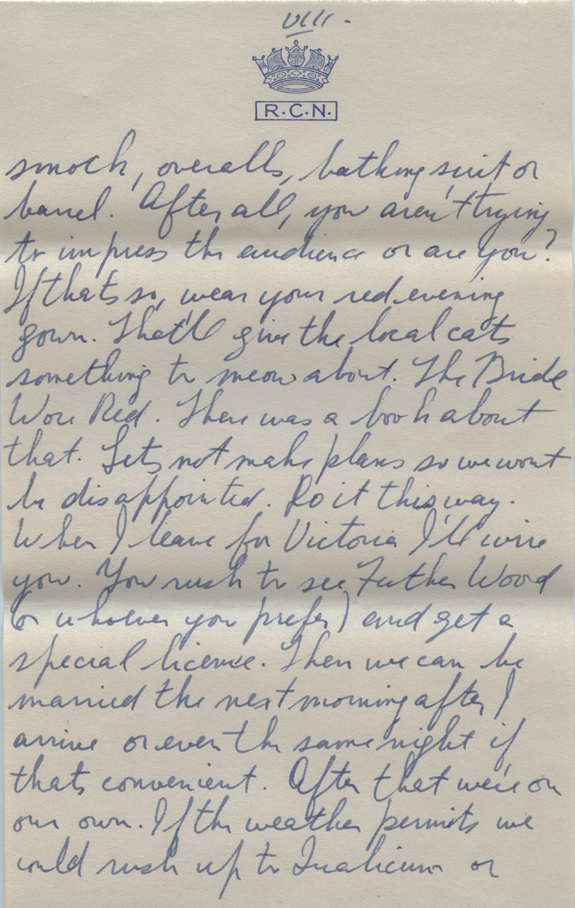 VIII.
R.C.N.
smock, overalls, bathing suit or
barrel. After all, you aren't trying
to impress the audience or are you?
If thats so, wear your red evening
gown. That'll give the local cats
something to meow about. The Bride
Wore Red. There was a book about
that. Lets not make plans so we wont
be disappointed. Do it this way.
When I leave for Victoria I'll wire
you. You rush to see Father Wood
(or whoever you prefer) and get a
special license. Then we can be
married the next morning after I
arrive or even the same night if
thats convenient. After that we're on
our own. If the weather permits we
could rush up to Qualicum or